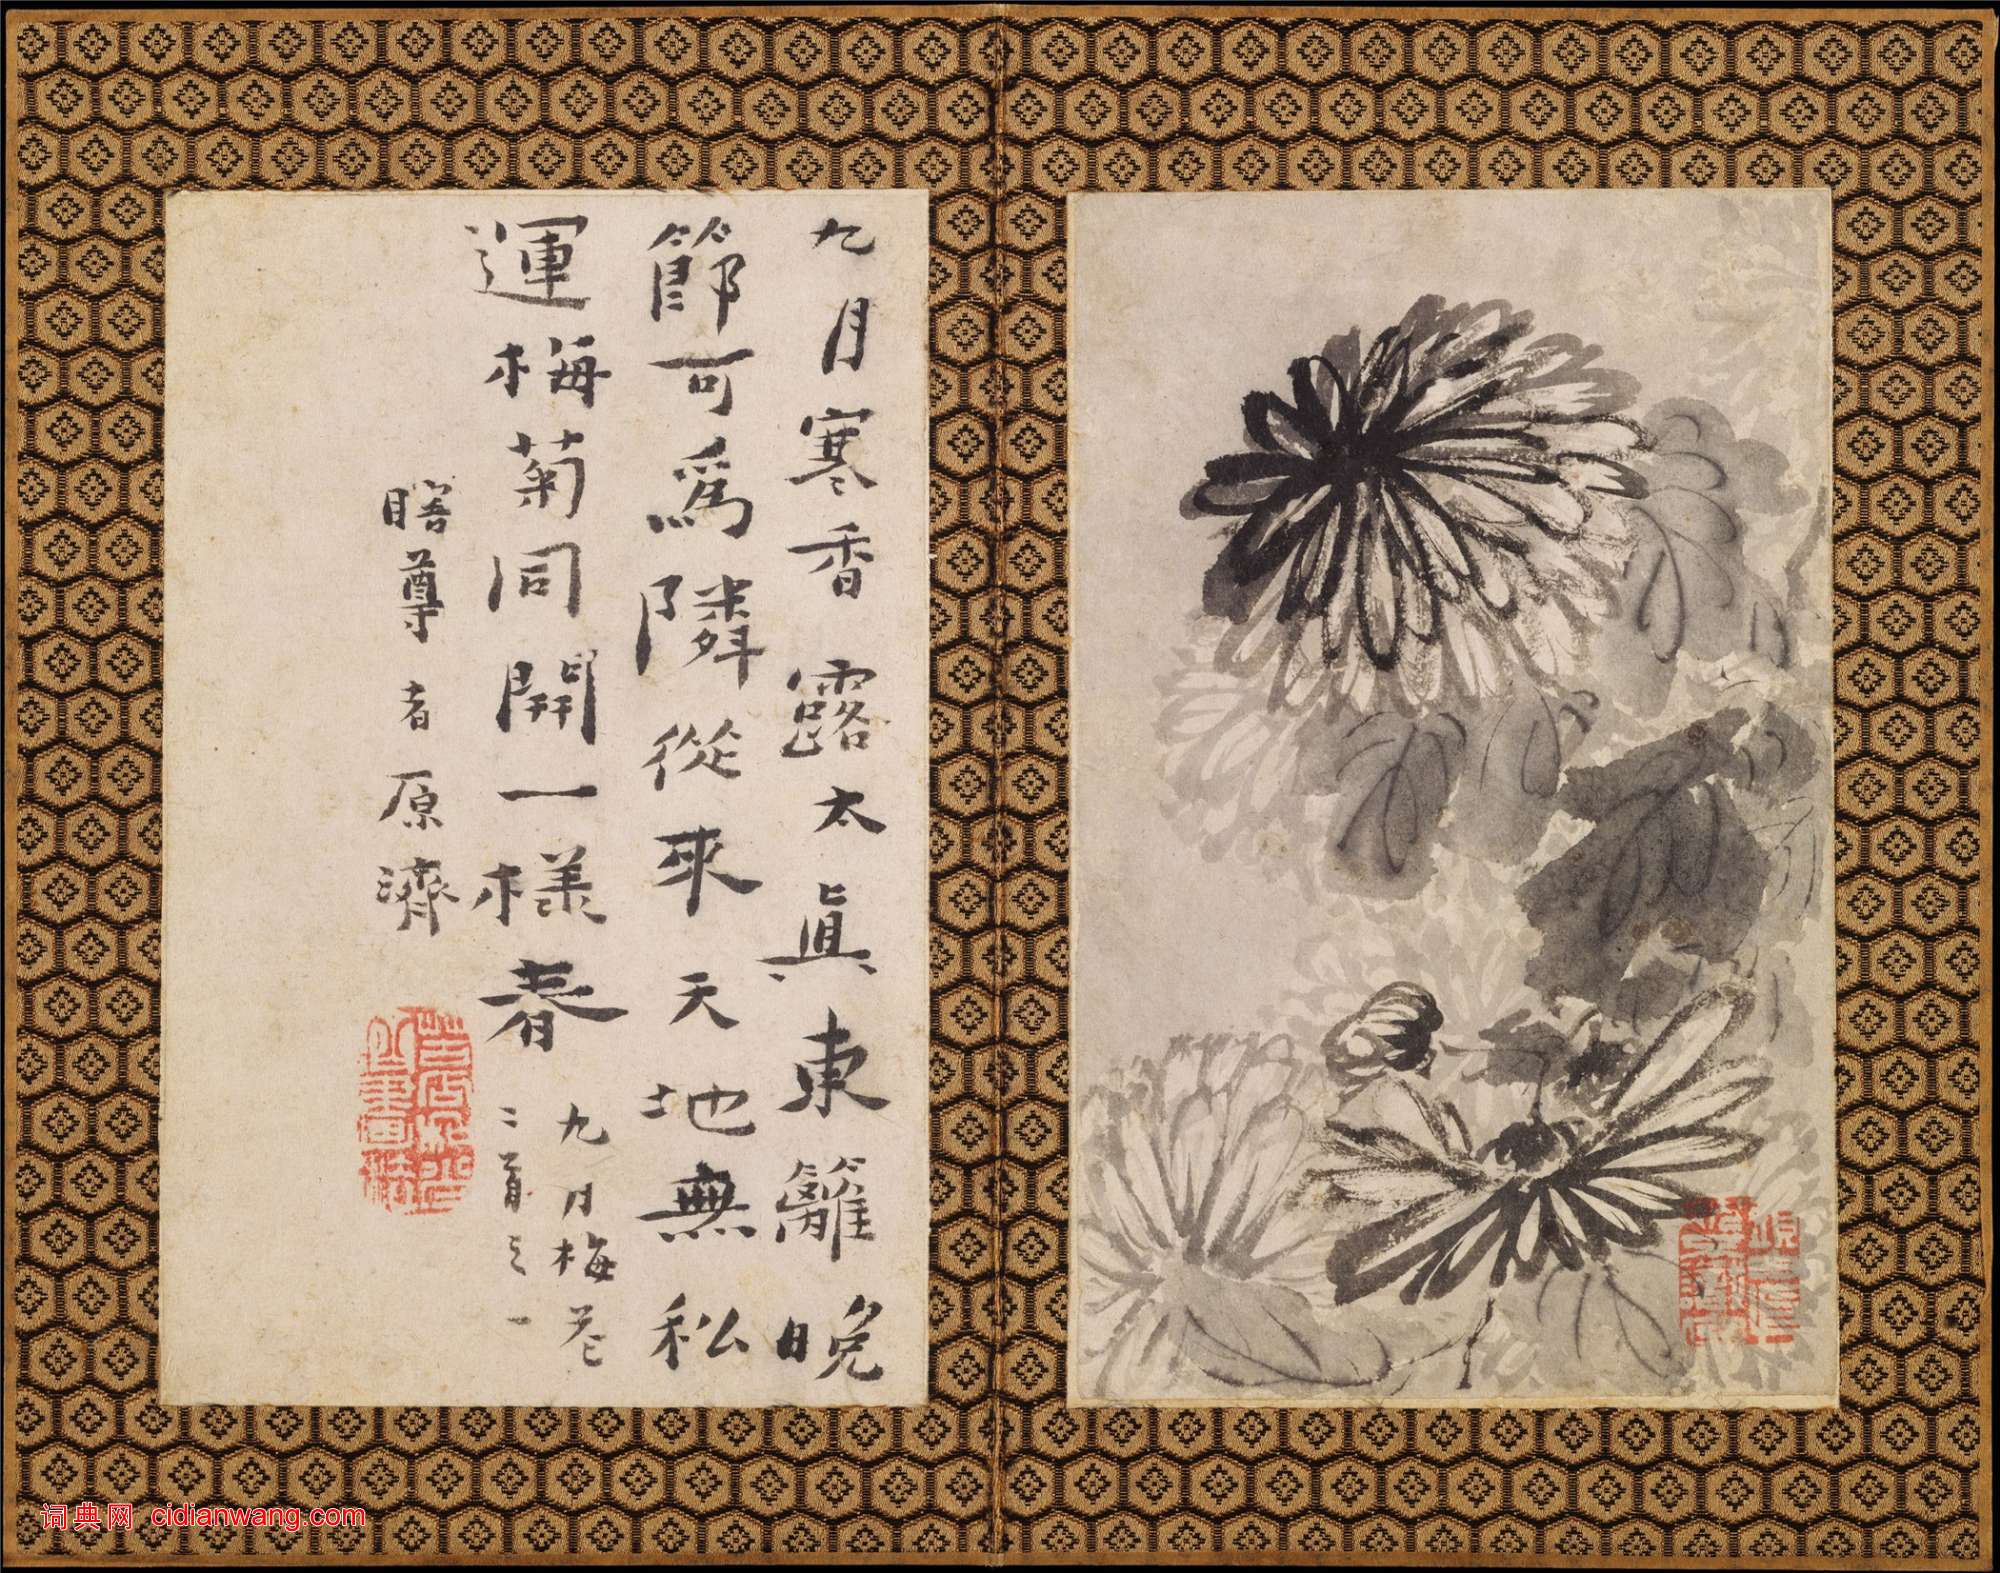 九月寒香露太眞東籬晚
節可爲隣從來天地無私
運梅菊同開一樣春
九月梅花
二首之一
瞎尊者原濟
词典网 cidianwang.com